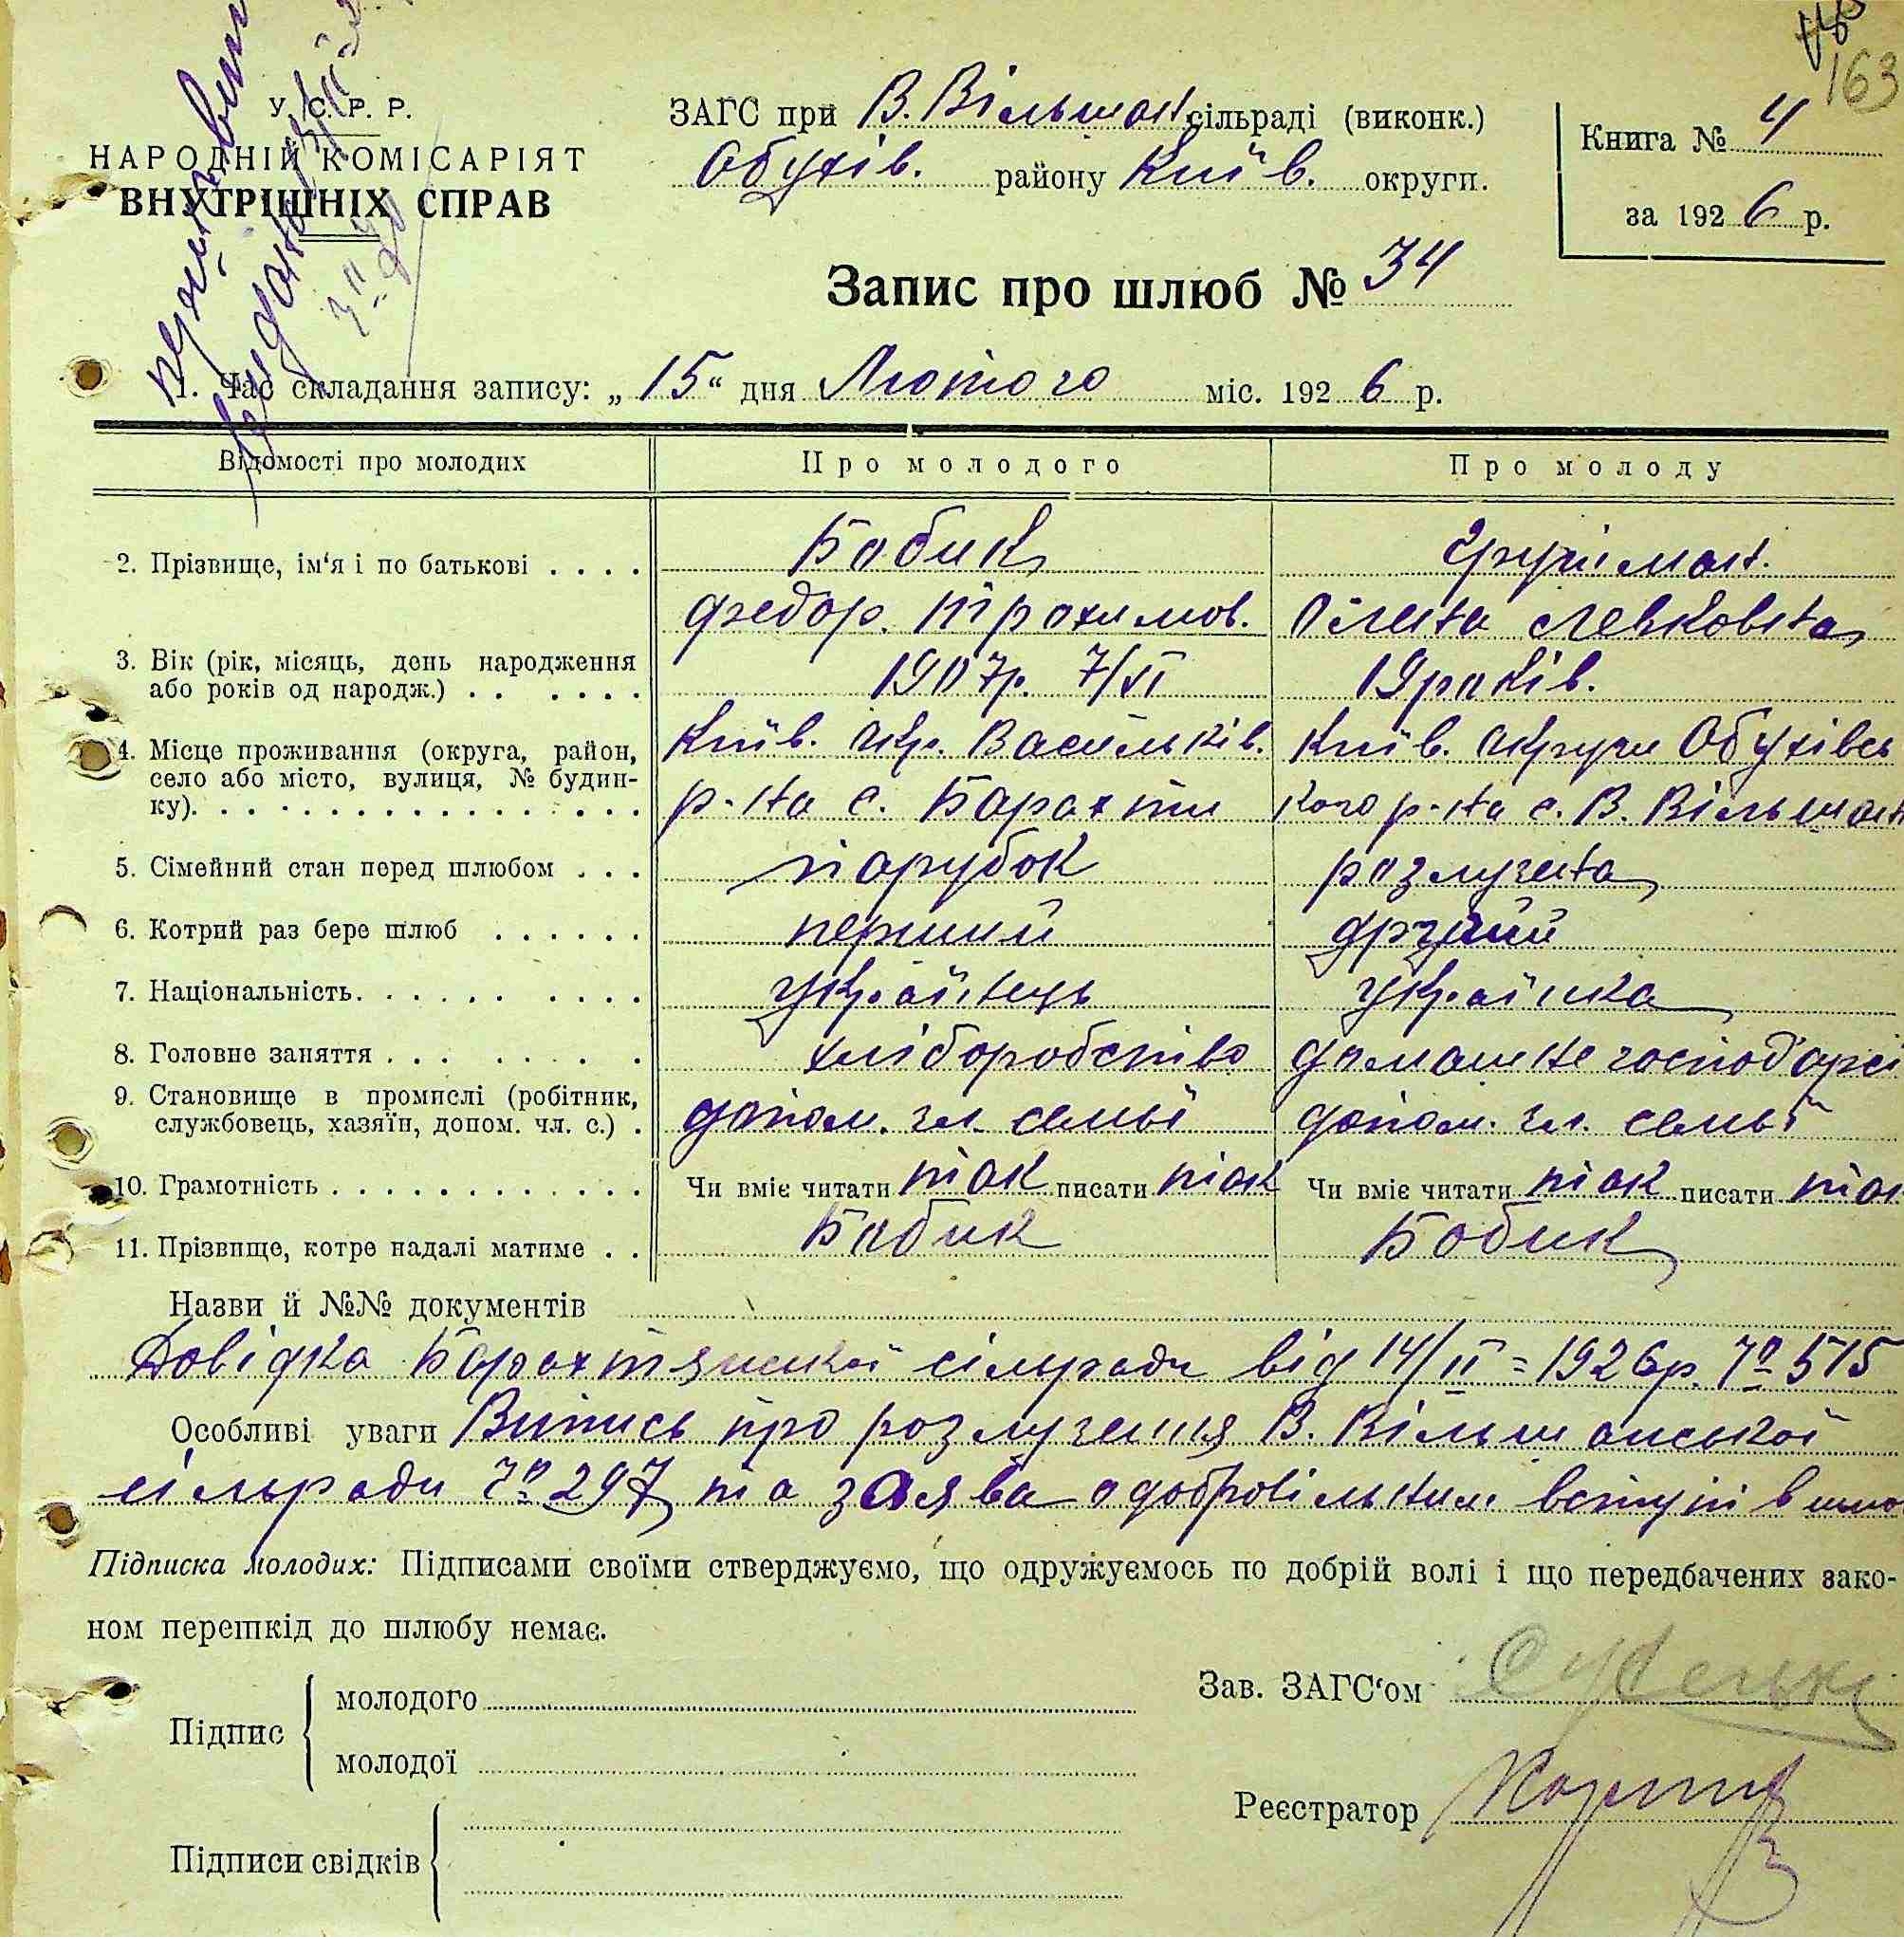 163
У. С. Р. Р.
НАРОДНІЙ КОМІСАРІЯТ
ВНУТРІШНІХ СПРАВ
ЗАГС при В. Вільшан сільраді (виконк.)
Обухів. району Київ. округи.
Книга № 4
за 1926 р.
Запис про шлюб № 34
1. Час складання запису: „15“ дня Лютого міс. 1926 р.
Відомості про молодих Про молодого Про молоду
2. Прізвище, ім'я і по батькові . . . . Бобик
Федор. Трохимов. Олена Левковна
3. Вік (рік, місяць, день народження 1907р. 7/VI 19 років.
або років од народж.) . . . . . .
4. Місце проживання (округа, район, Київ. окр. Васильків. Київ. округи Обухівсь
село або місто, вулиця, № будин- р-на с. Барахти кого р-на с. В. Вільшан
ку). . . . . . . . . . . . . . .
5. Сімейний стан перед шлюбом . . . парубок розлучена
6. Котрий раз бере шлюб . . . . . . первий другий
7. Національність. . . . . . . . . . українець українка
8. Головне заняття . . . . . . . . хліборобство домашне господарс
9. Становище в промислі (робітник, допом. чл. семьї допом. чл. семьї
службовець, хазяїн, допом. чл. с.) .
10. Грамотність . . . . . . . . . . . . . Чи вміє читати так писати так Чи вміє читати так писати так
11. Прізвище, котре надалі матиме . . Бобик Бобик
Назви й №№ документів
Довідка Барахтянської сілради від 14/II=1926р. № 515
Особливі уваги Випись про розлучення В. Вільшанської
сільради № 297 та заява о добровільним вступі в шлю
Підписка молодих: Підписами своїми стверджуємо, що одружуємось по добрій волі і що передбачених зако-
ном перешкід до шлюбу немає.
Підпис
молодого
молодої
Зав. ЗАГС'ом
Реєстратор
Підписи свідків